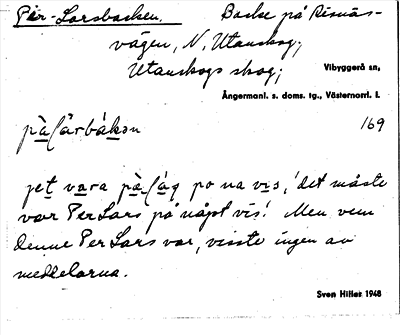 Pär-Larsbacken. Backe på Risnäs-
vägen, N. Utanskog;
Utanskogs skog; Vibyggerå sn,
Ångermanl. s. doms. tg., Västernorrl. l.
169
vara på na vis, 'det måste
var Per Lars på någåt vis'. Men vem
denne Per Lars var, visste ingen av
meddelarna.
Sven Hittes 1948